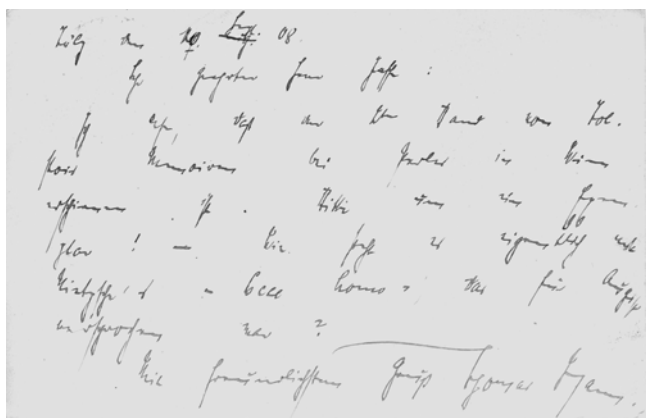 Tölz den 10. Sept. 08.
Sehr geehrter Herr Jaffe:
Ich sehe, daß der IIte Band von Tol-
stois Memoiren bei Perles in Wien
erschienen ist. Bitte um ein Exem-
plar! — Wie steht es eigentlich mit
Nietzsche's "Ecce homo", das für August
versprochen war?
Mit freundlichstem Gruß Thomas Mann.